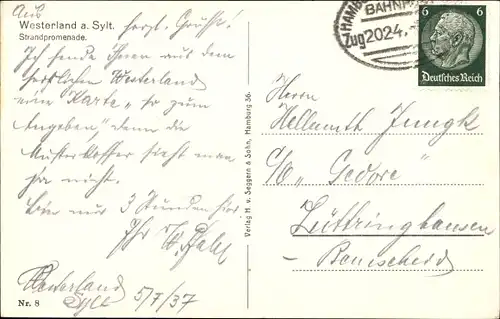 Aus
Westerland a. Sylt.
Strandpromenade.
herzl. Grüsse!
Ich sende Ihnen aus dem
herrlichen Westerland
eine Karte "so zum
Angeben" denn die
Musterkoffer sieht man
ja nicht.
Bin nur 3 Stunden hier.
Ihr
Westerland
Sylt 5/7/37
Nr. 8
Verlag H. v. Seggern & Sohn, Hamburg 36.
HAMB
BAHNP
Zug 2024
6 6
Deutsches Reich
Herrn
Hellmuth Jungk
c/o "Gedore"
Lüttringhausen
Remscheid